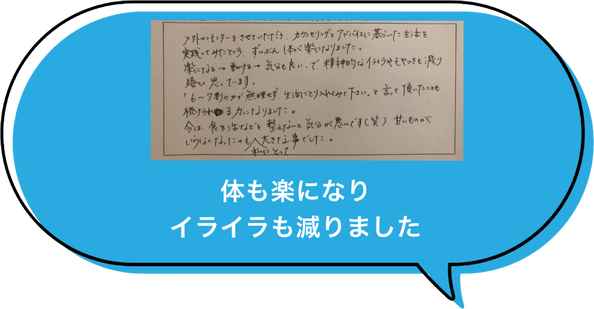 メタトロンモニターをさせていただき、カウンセリングとアドバイスに基づいた生活を
実践してみたところ、ずいぶん体が楽になりました。
楽になる→動ける→気分も良い、で精神的なイライラやモヤつきも減り
嬉しく思っています。
「6〜7割の力で無理せず生活にとり入れてみて下さい」と言って頂いたことも
続けられる力になりました。
今は、食生活などを整えないと気分が悪いです(笑) 甘いものが
いらなくなったのも私にとって大きな事でした。
体も楽になり
イライラも減りました